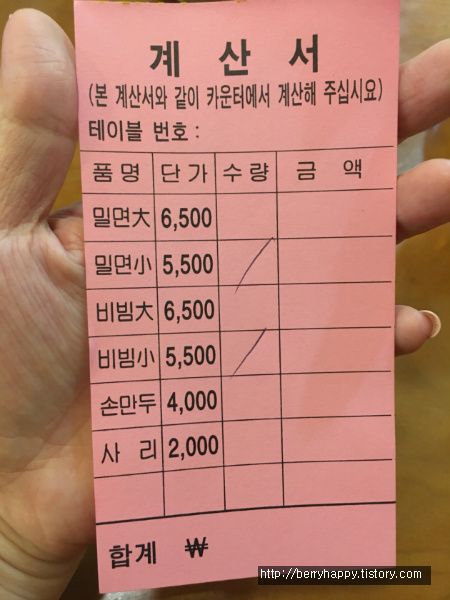 계 산 서
(본 계산서와 같이 카운터에서 계산해 주십시요)
테이블 번호 :
품 명 단 가 수 량 금 액
밀면大 6,500
밀면小 5,500 /
비빔大 6,500
비빔小 5,500 /
손만두 4,000
사 리 2,000
합계 ₩
http://berryhappy.tistory.com